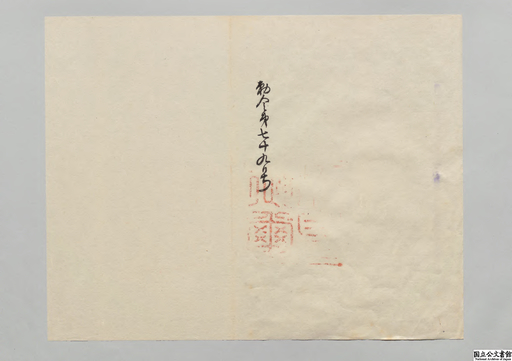 勅令第七十九号
国立公文書館
National Archives of Japan